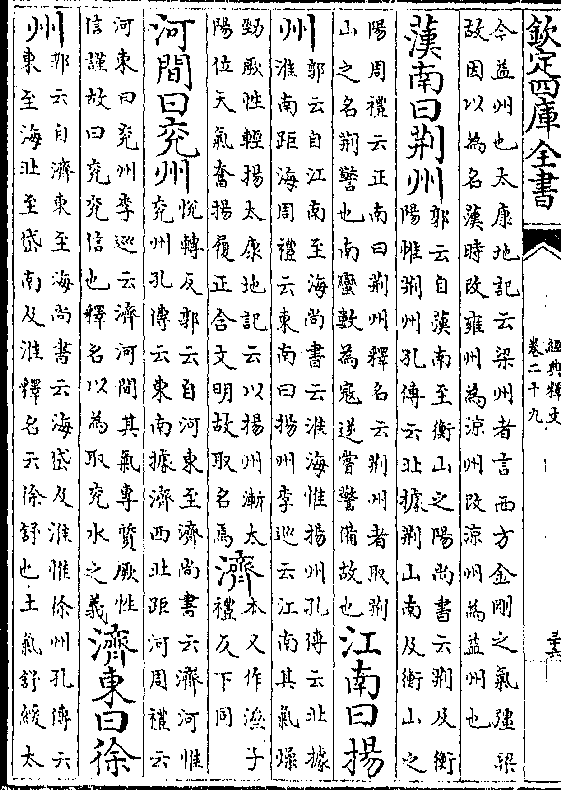 欽定四庫全書
經典釋文
卷二十九
今益州也太康地記云梁州者言西方金剛之氣彊梁
故因以為名漢時改雍州為涼州改涼州為益州也
漢南曰荆州
郭云自漢南至衡山之陽尚書云荆及衡
陽惟荆州孔傳云北據荆山南及衡山之
陽周禮云正南曰荆州釋名云荆州者取荆
山之名荆警也南蠻數為寇逆嘗警備故也
江南曰揚
州
郭云自江南至海尚書云淮海惟揚州孔傳云北據
淮南距海周禮云東南曰揚州李巡云江南其氣燥
勁厥性輕揚太康地記云以揚州漸太
陽位天氣奮揚履正含文明故取名焉
濟
本又作泲子
禮反下同
河間曰兖州
悦轉反郭云自河東至濟尚書云濟河惟
兖州孔傳云東南據濟西北距河周禮云
河東曰兖州李巡云濟河間其氣專質厥性
信謹故曰兖兖信也釋名以為取兖水之義
濟東曰徐
州
郭云自濟東至海尚書云海岱及淮惟徐州孔傳云
東至海北至岱南及淮釋名云徐舒也土氣舒緩太